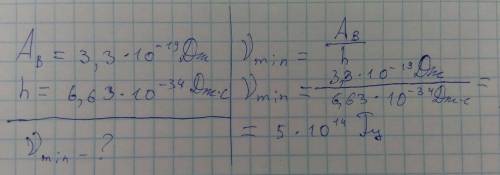 Aв = 3,3·10⁻¹⁹Дж
h = 6,63·10⁻³⁴Дж·с
νmin - ?
νmin = Aв/h
νmin = 3,3·10⁻¹⁹Дж/6,63·10⁻³⁴Дж·с =
= 5·10¹⁴ Гц